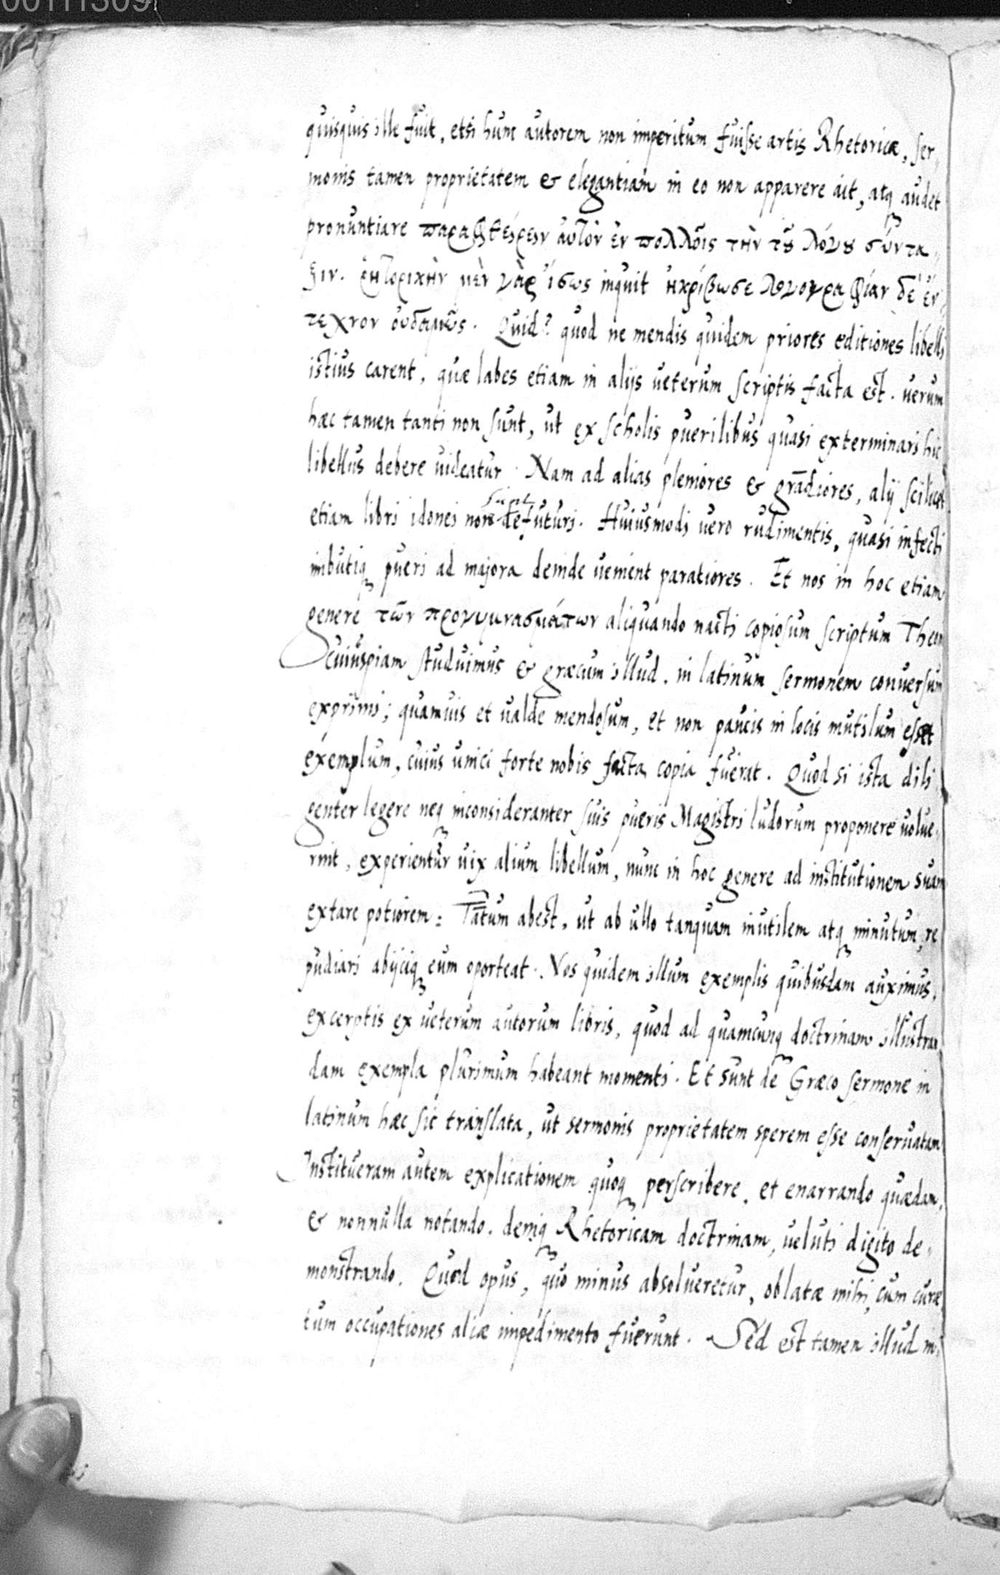 00111309
quisquis ille fuit, etsi hunc autorem non imperitum fuisse artis Rhetoricæ, ser,
monis tamen proprietatem & elegantiam in eo non apparere ait, atq audet
pronuntiare παραφθείρειν αὐτὸν ἐν πολλοῖς τὴν τοῦ λόγου σύντα,
ξιν. ῥητορικὴν μὲν γὰρ ἴσως inquit ἠκρίβωσε λογογραφίαν δὲ ἔν,
τεχνον οὐδαμῶς. Quid? quod ne mendis quidem priores editiones libelli
istius carent, quæ labes etiam in alijs ueterum scriptis facta est. uerum
hæc tamen tanti non sunt, ut ex scholis puerilibus quasi exterminari hic
libellus debere uideatur. Nam ad alias pleniores & grãdiores, alij scilicet
sunt
etiam libri idonei non defuturi. Huiusmodi uero rudimentis, quasi infecti
imbutiq pueri ad majora deinde uenient paratiores. Et nos in hoc etiam
genere τῶν προγυμνασμάτων aliquando nacti copiosum scriptum Theon
cuiuspiam studuimus & græcum illud, in latinum sermonem conuersum
exprimi; quamuis et ualde mendosum, et non paucis in locis mutilum esset
exemplum, cuius unici forte nobis facta copia fuerat. Quod si ista dili
genter legere neq inconsideranter suis pueris Magistri ludorum proponere uolue,
rint, experientur uix alium libellum, nunc in hoc genere ad institutionem suam
extare potiorem: Tãtum abest, ut ab ullo tanquam inutilem atq minutum, re
pudiari abijciq eum oporteat. Nos quidem illum exemplis quibusdam auximus,
excerptis ex ueterum autorum libris, quod ad quamcunq doctrinam illustran
dam exempla plurimum habeant momenti. Et sunt de Græco sermone in
latinum hæc sic translata, ut sermonis proprietatem sperem esse conseruatam
Institueram autem explicationem quoq perscribere, et enarrando quædam,
& nonnulla notando, deniq Rhetoricam doctrinam, ueluti digito de,
monstrando. Quod opus, quo minus absolueretur, oblatæ mihi, cum curæ
tum occupationes aliæ impedimento fuerunt. Sed est tamen illud mi,